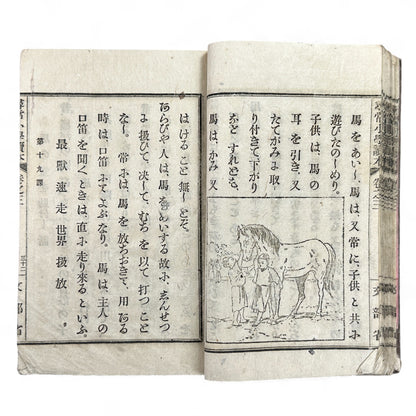 馬をあいし、馬は、又常に子供と共に
遊びたのしめり。
子供は、馬の
耳を引き、又
たてがみに取
り付きて、下がり
などすれども、
馬は、かみ又
はけること無しとぞ。
あらびや人は、馬をあいする故に、しんせつ
に扱ひて、決して、むちを以て打つこと
なし。常には、馬を放ちおきて、用ある
時は口笛にてよぶなり。馬は、主人の
口笛を聞くときは、直に走り来るといふ。
第十九課
最獣速走世界扱放
尋常小學讀本 卷之三
文部省